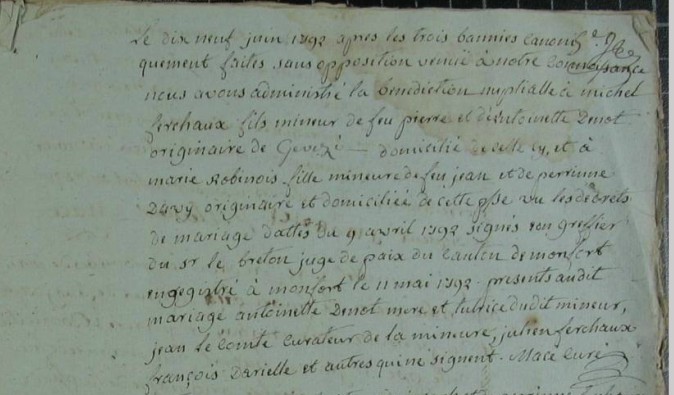 Le dix neuf juin 1792 apres les trois bannies canoni
quement faites sans opposition venüe à notre connoissance
nous avons administré la benediction nuptialle à michel
ferchaux fils mineur de feu pierre et d'antoinette Denot
originaire de Gevezé — domicilié de celle cy, et à
marie Robinois fille mineure de feu jean et de perrinne
Davy originaire et domiciliée de cette psse vu les décrets
de mariage dattés du 9 avril 1792 signés son greffier
du sr le breton juge de paix du canton de monfort
enregistré à monfort le 11 mai 1792 - presents audit
mariage antoinette Denot mere et tutrice dudit mineur,
jean le Comte curateur de la mineure, julien ferchaux
françois Darielle et autres qui ne signent. Macé curé